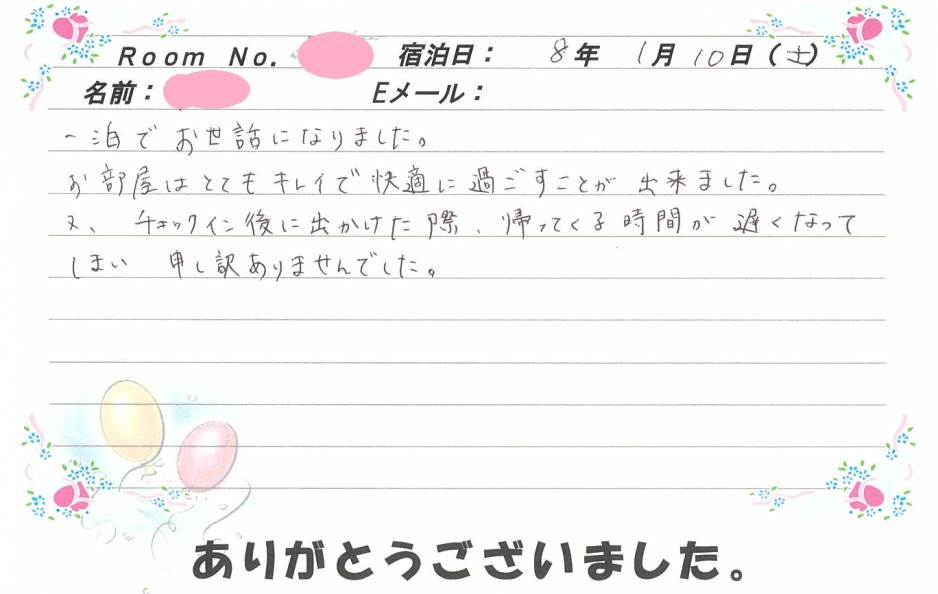 Room No. 宿泊日： 8年 1月 10日（土）
名前： Eメール：
一泊でお世話になりました。
お部屋はとてもキレイで快適に過ごすことが出来ました。
又、チェックイン後に出かけた際、帰ってくる時間が遅くなって
しまい 申し訳ありませんでした。
ありがとうございました。